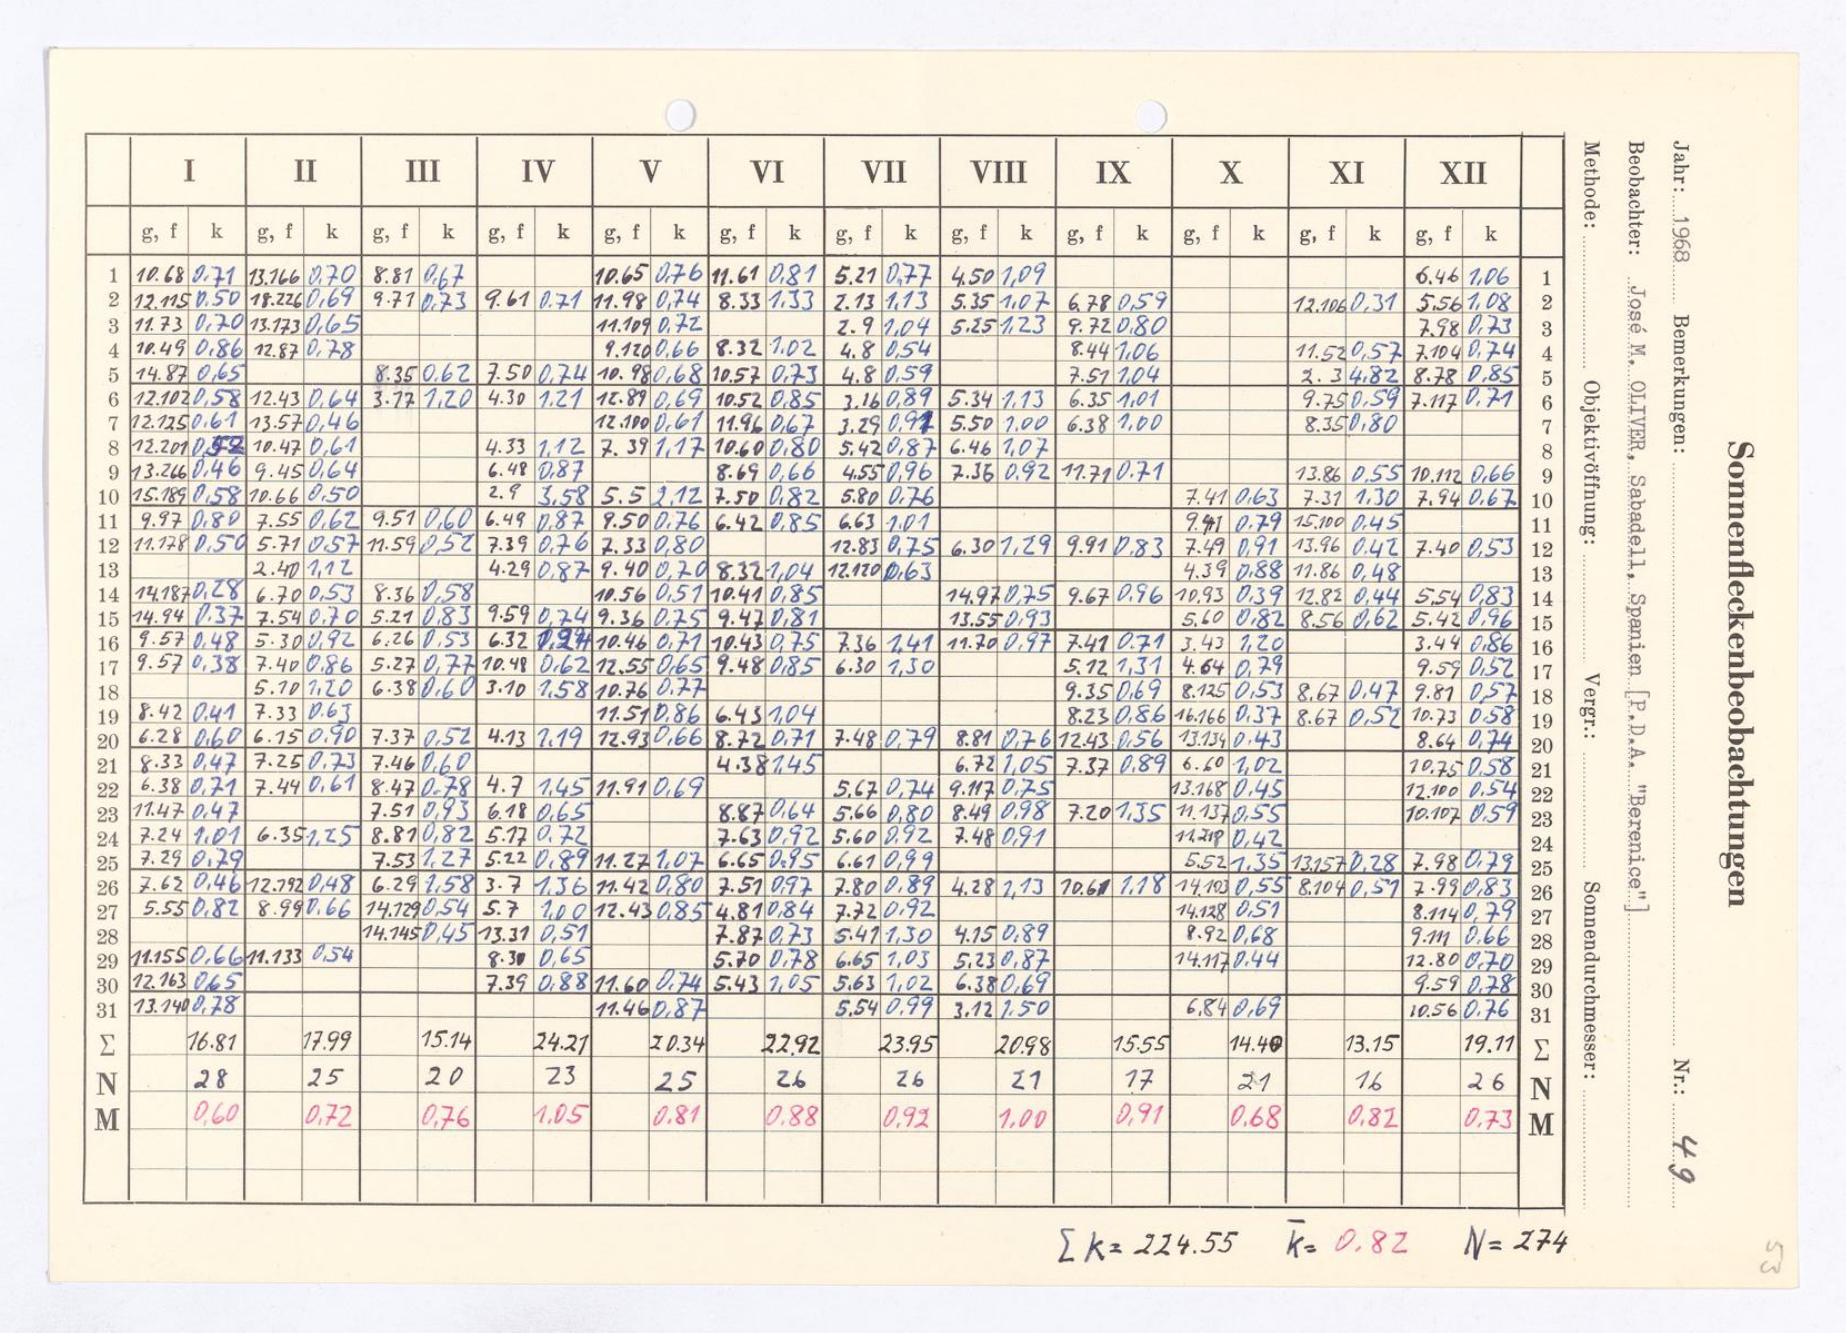 Sonnenfleckenbeobachtungen
Jahr: 1968 Bemerkungen: Nr.: 49
Beobachter: José M. OLIVER, Sabadell, Spanien [P.D.A. "Berenice"]
Methode: Objektivöffnung: Vergr.: Sonnendurchmesser:
I II III IV V VI VII VIII IX X XI XII
g, f k g, f k g, f k g, f k g, f k g, f k g, f k g, f k g, f k g, f k g, f k g, f k
1 10.68 0.71 13.166 0,70 8.81 0,67 10.65 0,76 11.61 0,81 5.21 0,77 4.50 1,09 6.46 1,06 1
2 12.115 0.50 18.226 0,69 9.71 0,73 9.61 0.71 11.98 0,74 8.33 1.33 2.13 1,13 5.35 1,07 6,78 0,59 12.106 0,31 5.56 1,08 2
3 11.73 0,70 13.173 0,65 11.109 0,72 2.9 1,04 5.25 1,23 9.72 0,80 7.98 0,73 3
4 10.49 0,86 12.87 0,78 9.120 0,66 8.32 1.02 4.8 0,54 8.44 1,06 11.52 0,57 7.104 0,74 4
5 14.87 0,65 8.35 0,62 7.50 0,74 10.98 0,68 10.57 0,73 4.8 0,59 7.51 1,04 2.3 4,82 8.78 0,85 5
6 12.102 0,58 12.43 0,64 3.17 1,20 4.30 1,21 12.89 0,69 10.52 0,85 3.16 0,89 5.34 1,13 6.35 1,01 9.75 0,59 7.117 0,71 6
7 12.125 0,61 13.57 0,46 12.100 0,61 11.96 0,67 3.29 0,91 5.50 1,00 6.38 1,00 8.35 0,80 7
8 12.201 0,52 10.47 0,61 4.33 1,12 7.39 1,17 10.60 0,80 5.42 0,87 6.46 1,07 8
9 13.266 0,46 9.45 0,64 6.48 0,87 8.69 0,66 4.55 0,96 7.36 0,92 11.71 0.71 13.86 0,55 10.112 0,66 9
10 15.189 0,58 10.66 0,50 2.9 3,58 5.5 2,12 7.50 0,82 5.80 0,76 7.41 0,63 7.31 1.30 7.94 0,67 10
11 9.97 0,80 7.55 0,62 9.51 0,60 6.49 0,87 9.50 0,76 6.42 0,85 6.63 1,01 9.41 0,79 15.100 0,45 11
12 11.178 0,50 5.71 0,57 11.59 0,52 7.39 0,76 7.33 0,80 12.83 0,75 6.30 1,29 9.91 0,83 7.49 0,91 13.96 0,42 7.40 0,53 12
13 2.40 1,12 4.29 0,87 9.40 0,70 8.32 1,04 12.120 0,63 4.39 0,88 11.86 0,48 13
14 14.187 0,28 6.70 0,53 8.36 0,58 10.56 0,51 10.41 0,85 14.97 0,75 9.67 0,96 10,93 0,39 12.82 0,44 5,54 0,83 14
15 14.94 0,37 7.54 0,70 5.21 0,83 9.59 0,74 9.36 0,75 9.47 0,81 13.55 0,93 5.60 0,82 8.56 0,62 5.42 0,96 15
16 9.57 0,48 5.30 0,92 6.26 0,53 6.32 0,97 10.46 0,71 10.43 0,75 7.36 1,41 11.70 0,97 7.41 0.71 3.43 1,20 3.44 0,86 16
17 9.57 0,38 7.40 0,86 5.27 0,77 10.48 0,62 12.55 0,65 9.48 0,85 6.30 1,30 5.12 1,31 4.64 0,79 9.59 0,52 17
18 5.10 1,20 6.38 0,60 3.10 1,58 10.76 0,77 9.35 0,69 8.125 0,53 8.67 0,47 9.81 0,57 18
19 8.42 0,41 7.33 0.63 11.51 0,86 6.43 1,04 8.23 0,86 16.166 0,37 8.67 0,52 10.73 0,58 19
20 6.28 0,60 6.15 0,90 7.37 0,52 4.13 1,19 12.93 0,66 8.72 0,71 7.48 0,79 8.81 0,76 12.43 0,56 13.134 0,43 8.64 0,74 20
21 8.33 0,47 7.25 0,73 7.46 0,60 4.38 1,45 6.72 1,05 7.37 0,89 6.60 1,02 10.75 0,58 21
22 6.38 0,71 7.44 0,61 8.47 0,78 4.7 1,45 11.91 0,69 5.67 0,74 9.117 0,75 13.168 0,45 12.100 0,54 22
23 11.47 0,47 7.51 0,93 6.18 0,65 8.87 0,64 5.66 0,80 8.49 0,98 7.20 1,35 11.137 0,55 10.107 0,59 23
24 7.24 1,01 6.35 1,25 8.81 0,82 5.17 0,72 7.63 0,92 5.60 0,92 7.48 0,91 11.218 0,42 24
25 7.29 0,79 7.53 1,27 5.22 0,89 11.27 1,07 6.65 0,95 6.61 0,99 5.52 1,35 13.157 0,28 7.98 0,79 25
26 7.62 0,46 12.192 0,48 6.29 1,58 3.7 1,36 11.42 0,80 7.51 0,97 7.80 0,89 4.28 1,13 10.61 1,18 14.103 0,55 8.104 0,51 7.99 0,83 26
27 5.55 0,82 8.99 0.66 14.129 0,54 5.7 1,00 12.43 0,85 4.81 0,84 7.72 0,92 14.128 0,51 8.114 0,79 27
28 14.145 0,45 13.31 0,51 7.87 0,73 5.41 1,30 4.15 0,89 8.92 0,68 9.111 0.66 28
29 11.155 0,66 11.133 0,54 8.30 0,65 5.70 0,78 6.65 1,03 5.23 0,87 14.117 0.44 12.80 0,70 29
30 12.163 0,65 7.39 0,88 11.60 0,74 5.43 1,05 5.63 1,02 6.38 0,69 9.59 0,78 30
31 13.140 0,78 11.46 0,87 5.54 0,99 3.12 1.50 6,84 0,69 10.56 0.76 31
Σ 16.81 17.99 15.14 24.21 20.34 22.92 23.95 20.98 15.55 14.40 13.15 19.11 Σ
N 28 25 20 23 25 26 26 21 17 21 16 26 N
M 0,60 0,72 0,76 1.05 0.81 0.88 0,92 1,00 0,91 0.68 0,82 0.73 M
Σ k = 224.55 k̄ = 0.82 N = 274
53